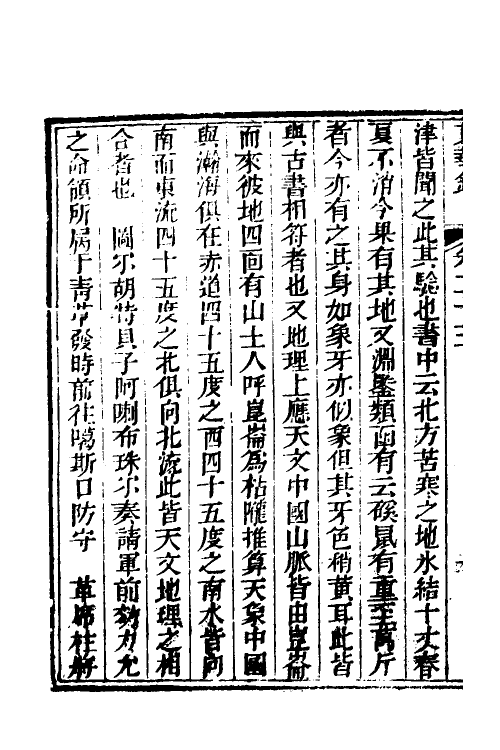 東華錄 卷二十一
津皆聞之此其驗也書中云北方苦寒之地氷結十丈春
夏不消今果有其地又淵鑒類函有云磎鼠有重至萬斤
者今亦有之其身如象牙亦似象但其牙色稍黃耳此皆
與古書相符者也又地理上應天文中國山脈皆由崑崙
而來彼地四面有山土人呼崑崙爲枯隴推算天象中國
與瀚海俱在赤道四十五度之西四十五度之南水皆向
南而東流四十五度之北俱向北流此皆天文地理之相
合者也 圖尔胡特貝子阿喇布珠尔奏請軍前効力允
之命領所屬于青草發時前往噶斯口防守 革席柱將